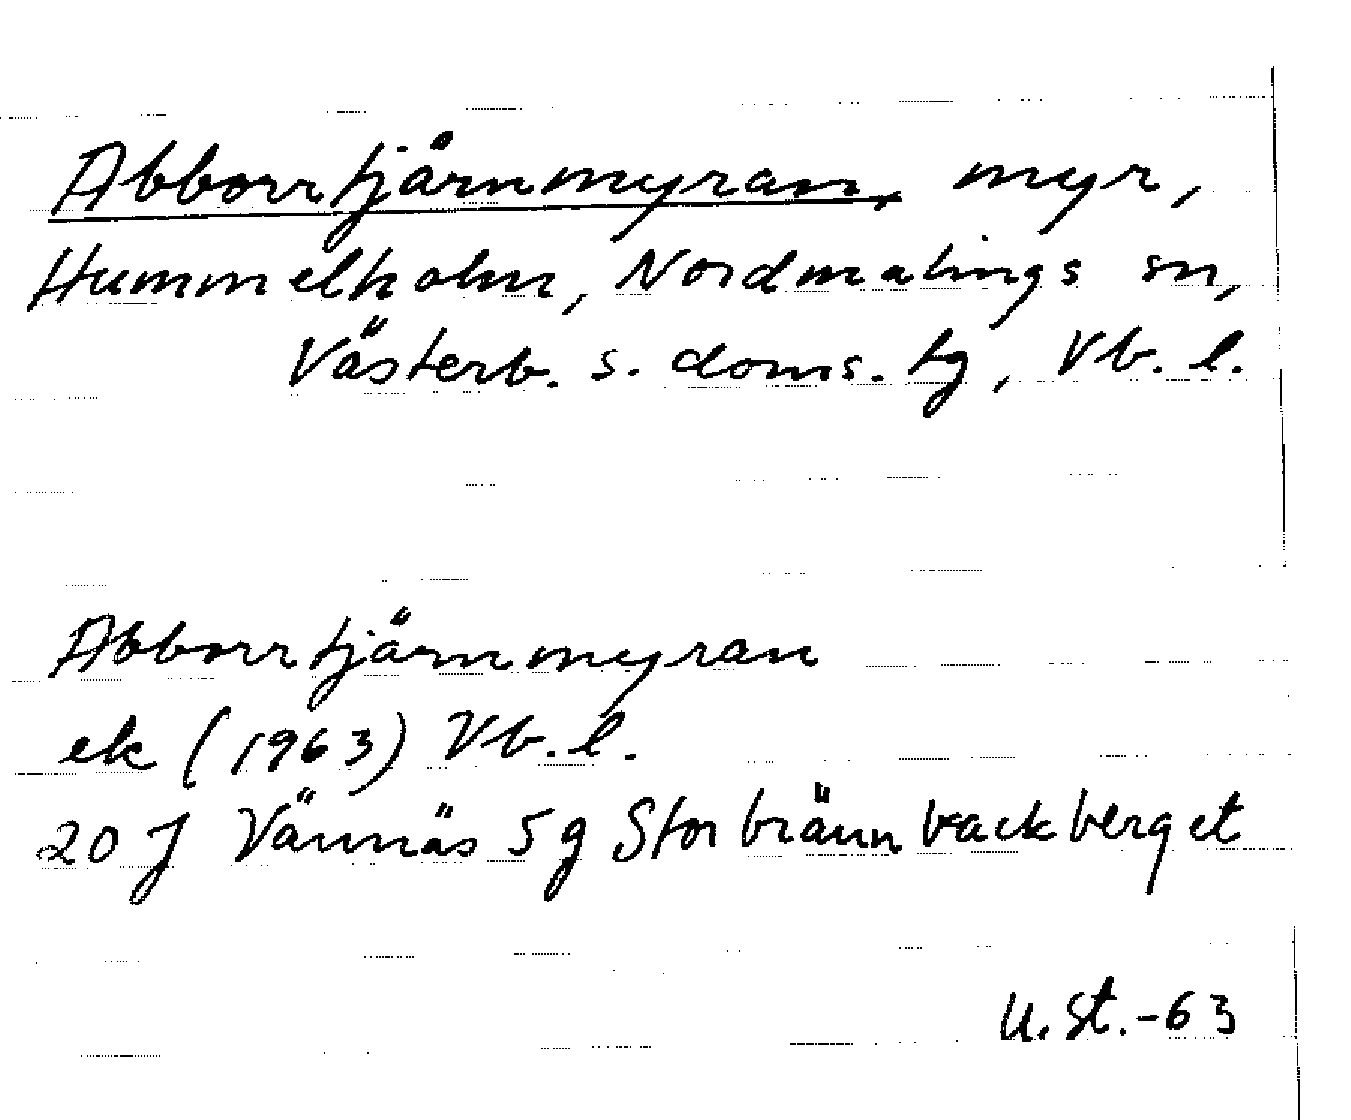 Abborrtjärnmyran, myr,
Hummelholm, Nordmalings sn,
Västerb. s. doms. tg, Vb. l.
Abborrtjärnmyran
ek (1963) Vb. l.
20 J Vännäs 5 g Storbrännbackberget
U. St. -63